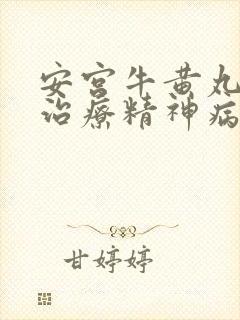 安宫牛黄丸
治療精神病
甘婷婷